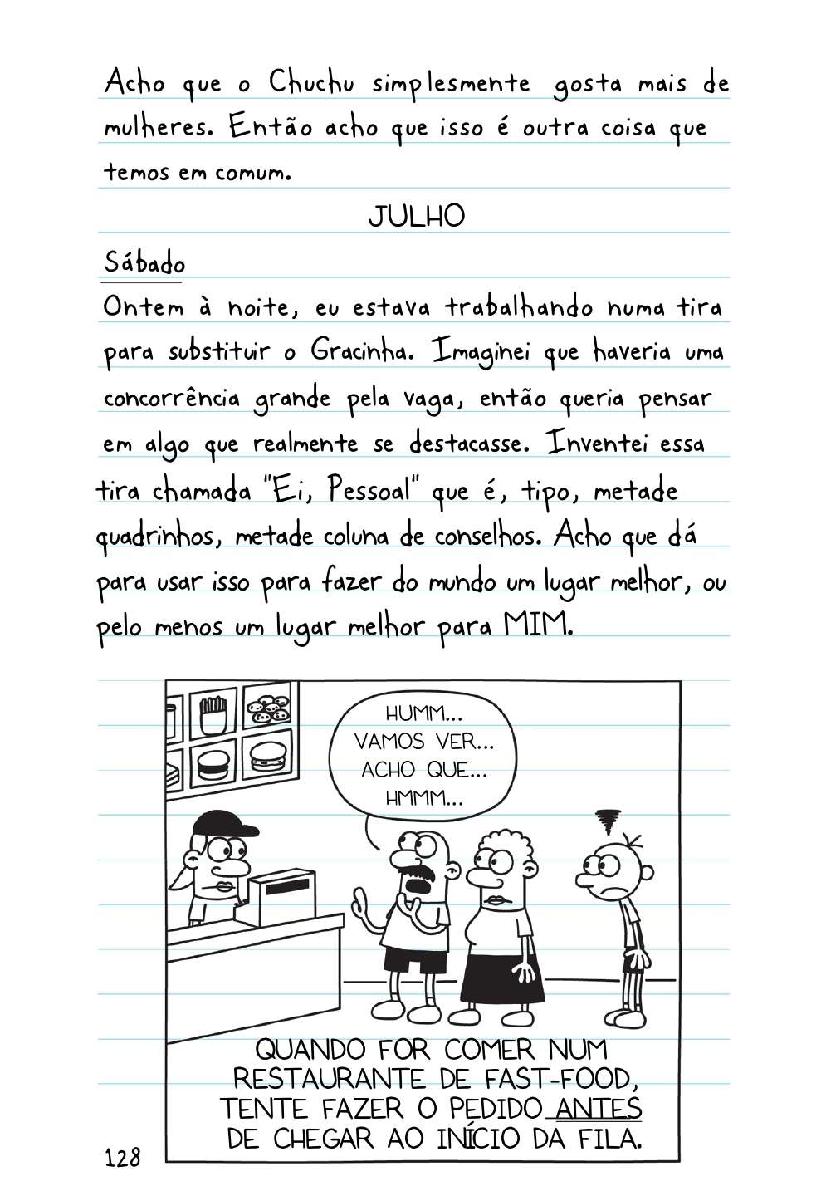 Acho que o Chuchu simplesmente gosta mais de
mulheres. Então acho que isso é outra coisa que
temos em comum.
JULHO
Sábado
Ontem à noite, eu estava trabalhando numa tira
para substituir o Gracinha. Imaginei que haveria uma
concorrência grande pela vaga, então queria pensar
em algo que realmente se destacasse. Inventei essa
tira chamada "Ei, Pessoal" que é, tipo, metade
quadrinhos, metade coluna de conselhos. Acho que dá
para usar isso para fazer do mundo um lugar melhor, ou
pelo menos um lugar melhor para MIM.
HUMM...
VAMOS VER...
ACHO QUE...
HMMM...
QUANDO FOR COMER NUM
RESTAURANTE DE FAST-FOOD,
TENTE FAZER O PEDIDO ANTES
DE CHEGAR AO INÍCIO DA FILA.
128